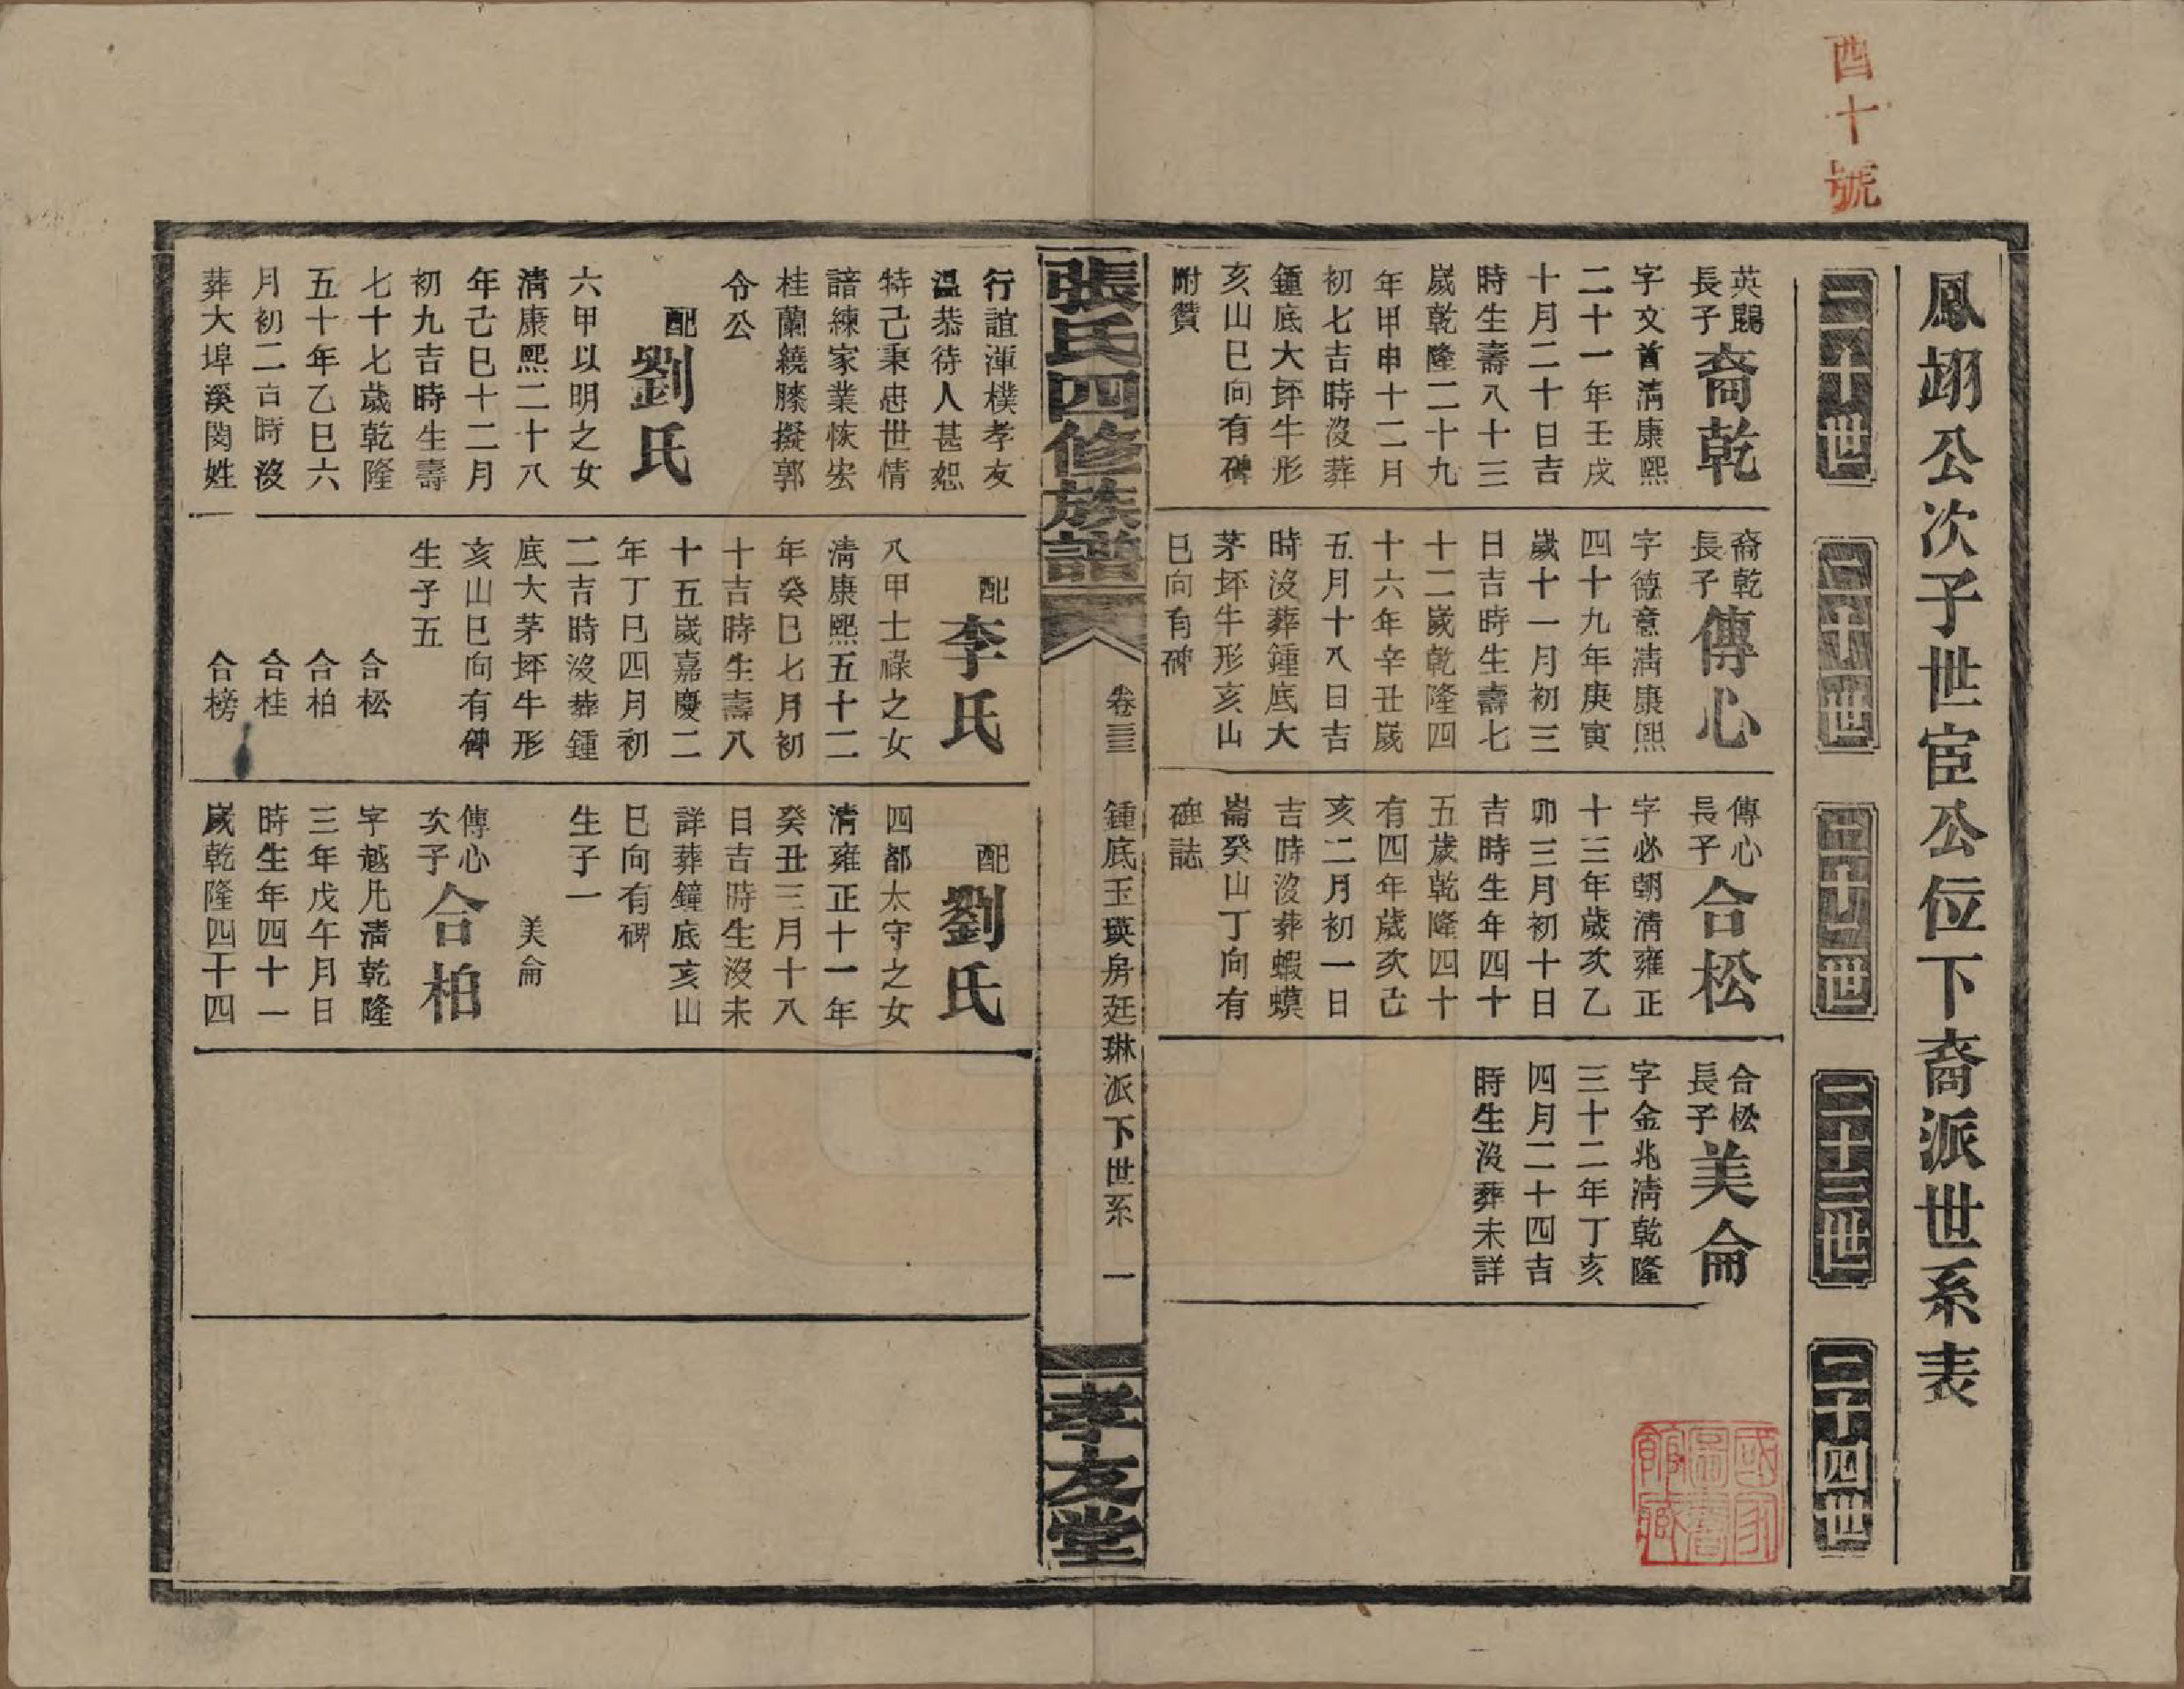 酉十號
鳳翊公次子世宦公位下裔派世系表
二十世
二十一世
二十二世
二十三世
二十四世
英賜
長子
裔乾
字文首清康熙
二十一年壬戌
十月二十日吉
時生壽八十三
歲乾隆二十九
年甲申十二月
初七吉時沒葬
鍾底大坪牛形
亥山巳向有碑
附贊
裔乾
長子
傳心
字德意清康熙
四十九年庚寅
歲十一月初三
日吉時生壽七
十二歲乾隆四
十六年辛丑歲
五月十八日吉
時沒葬鍾底大
茅坪牛形亥山
巳向有碑
傳心
長子
合松
字必朝清雍正
十三年歲次乙
卯三月初十日
吉時生年四十
五歲乾隆四十
有四年歲次己
亥二月初一日
吉時沒葬蝦蟆
崙癸山丁向有
碑誌
合松
長子
美侖
字金兆清乾隆
三十二年丁亥
四月二十四吉
時生沒葬未詳
國家圖書館藏
張氏四修族譜
卷三三
鍾底玉瑛房廷琳派下世系
一
孝友堂
行誼渾樸孝友
溫恭待人甚恕
特己秉忠世情
諳練家業恢宏
桂蘭繞膝擬郭
令公
配
劉氏
六甲以明之女
清康熙二十八
年己巳十二月
初九吉時生壽
七十七歲乾隆
五十年乙巳六
月初二吉時沒
葬大埠溪閔姓
配
李氏
八甲士祿之女
清康熙五十二
年癸巳七月初
十吉時生壽八
十五歲嘉慶二
年丁巳四月初
二吉時沒葬鍾
底大茅坪牛形
亥山巳向有碑
生子五
合松
合柏
合桂
合榜
配
劉氏
四都太守之女
清雍正十一年
癸丑三月十八
日吉時生沒未
詳葬鐘底亥山
巳向有碑
生子一
美侖
傳心
次子
合柏
字越凡清乾隆
三年戊午月日
時生年四十一
歲乾隆四十四